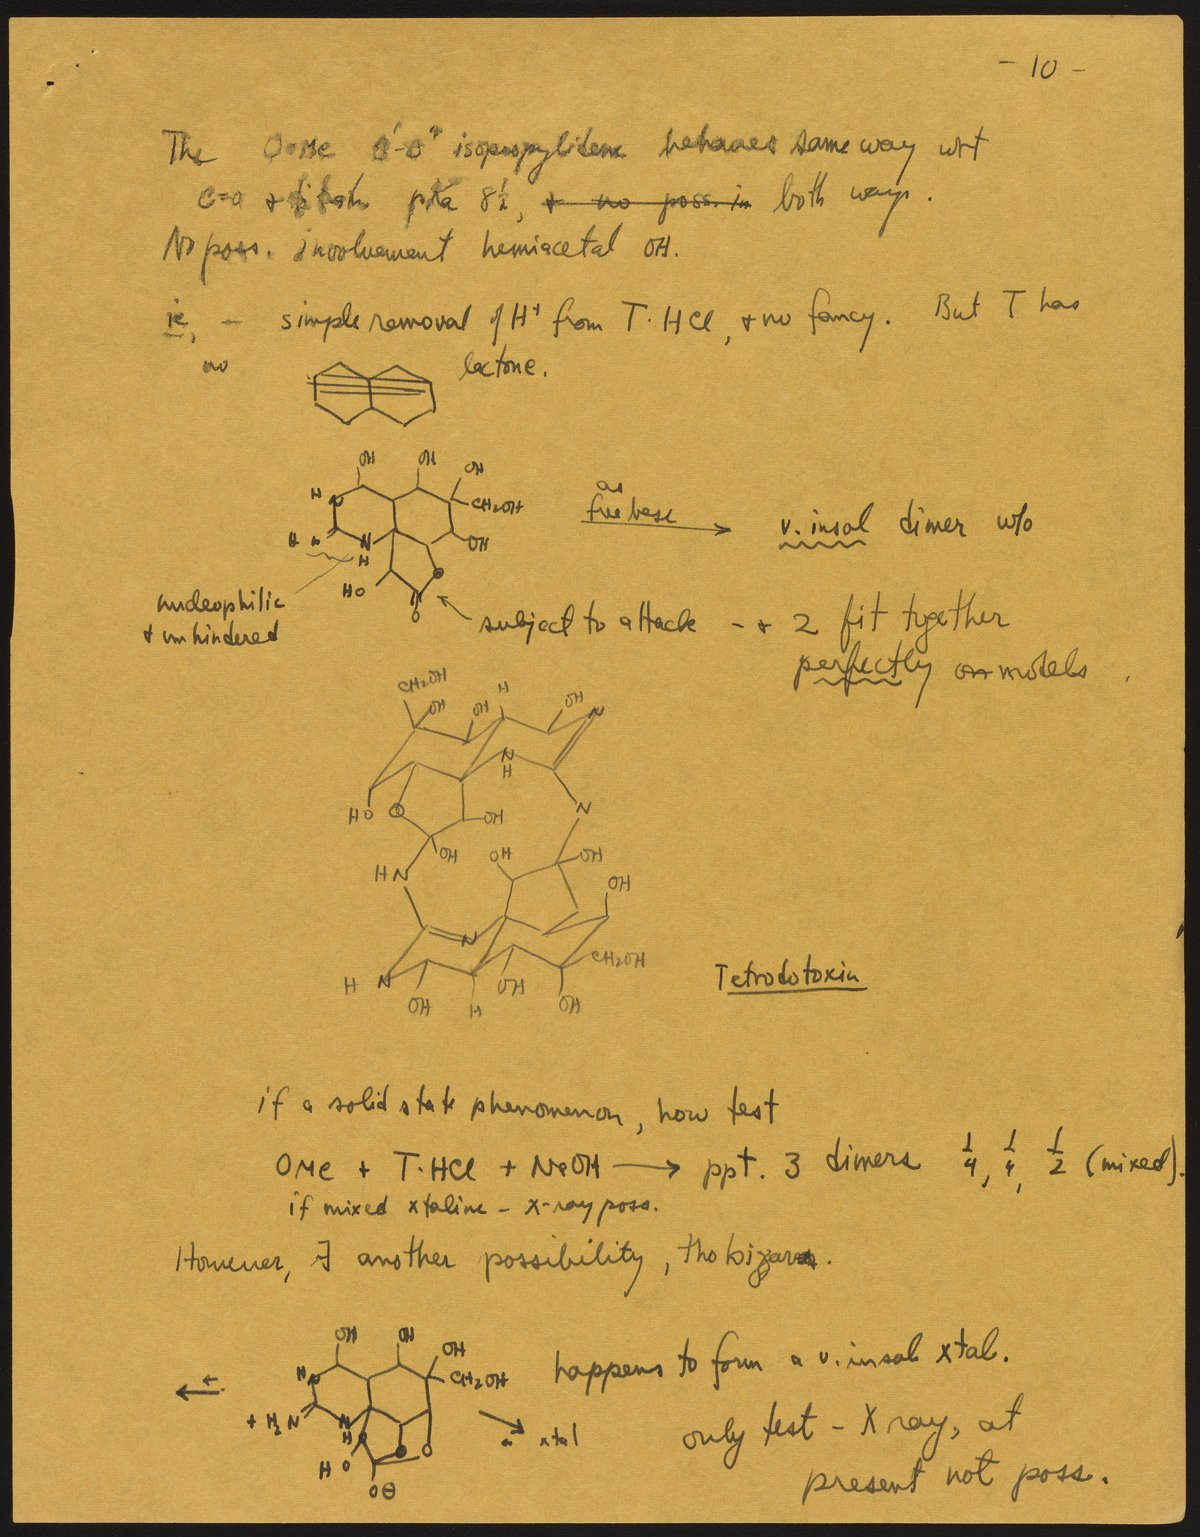 - 10 -
The O-Me O'-O" isopropylidene behaves same way wrt
C=O + titr pKa 8½, + no poss. in both ways.
No poss. involvement hemiacetal OH.
ie, - simple removal of H+ from T·HCl, + no fancy. But T has
no lactone.
OH OH OH
H N CH2OH
H N N OH
H
HO O
O
as
free base
v. insol dimer w/o
nucleophilic
+ unhindered
subject to attack - + 2 fit together
perfectly on models.
CH2OH
OH OH H OH N
N
H
HO O OH N
OH OH OH
HN OH
N
H N CH2OH
OH H OH OH
Tetrodotoxin
if a solid state phenomenon, how test
OMe + T·HCl + NaOH → ppt. 3 dimers 1/4, 1/4, 1/2 (mixed).
if mixed xtaline - X-ray poss.
However, ∃ another possibility, tho bizarre.
OH OH OH
HN CH2OH
+ H2N N
H
HO O O
O⊖
← xtal
happens to form a v. insol xtal.
only test - X ray, at
present not poss.